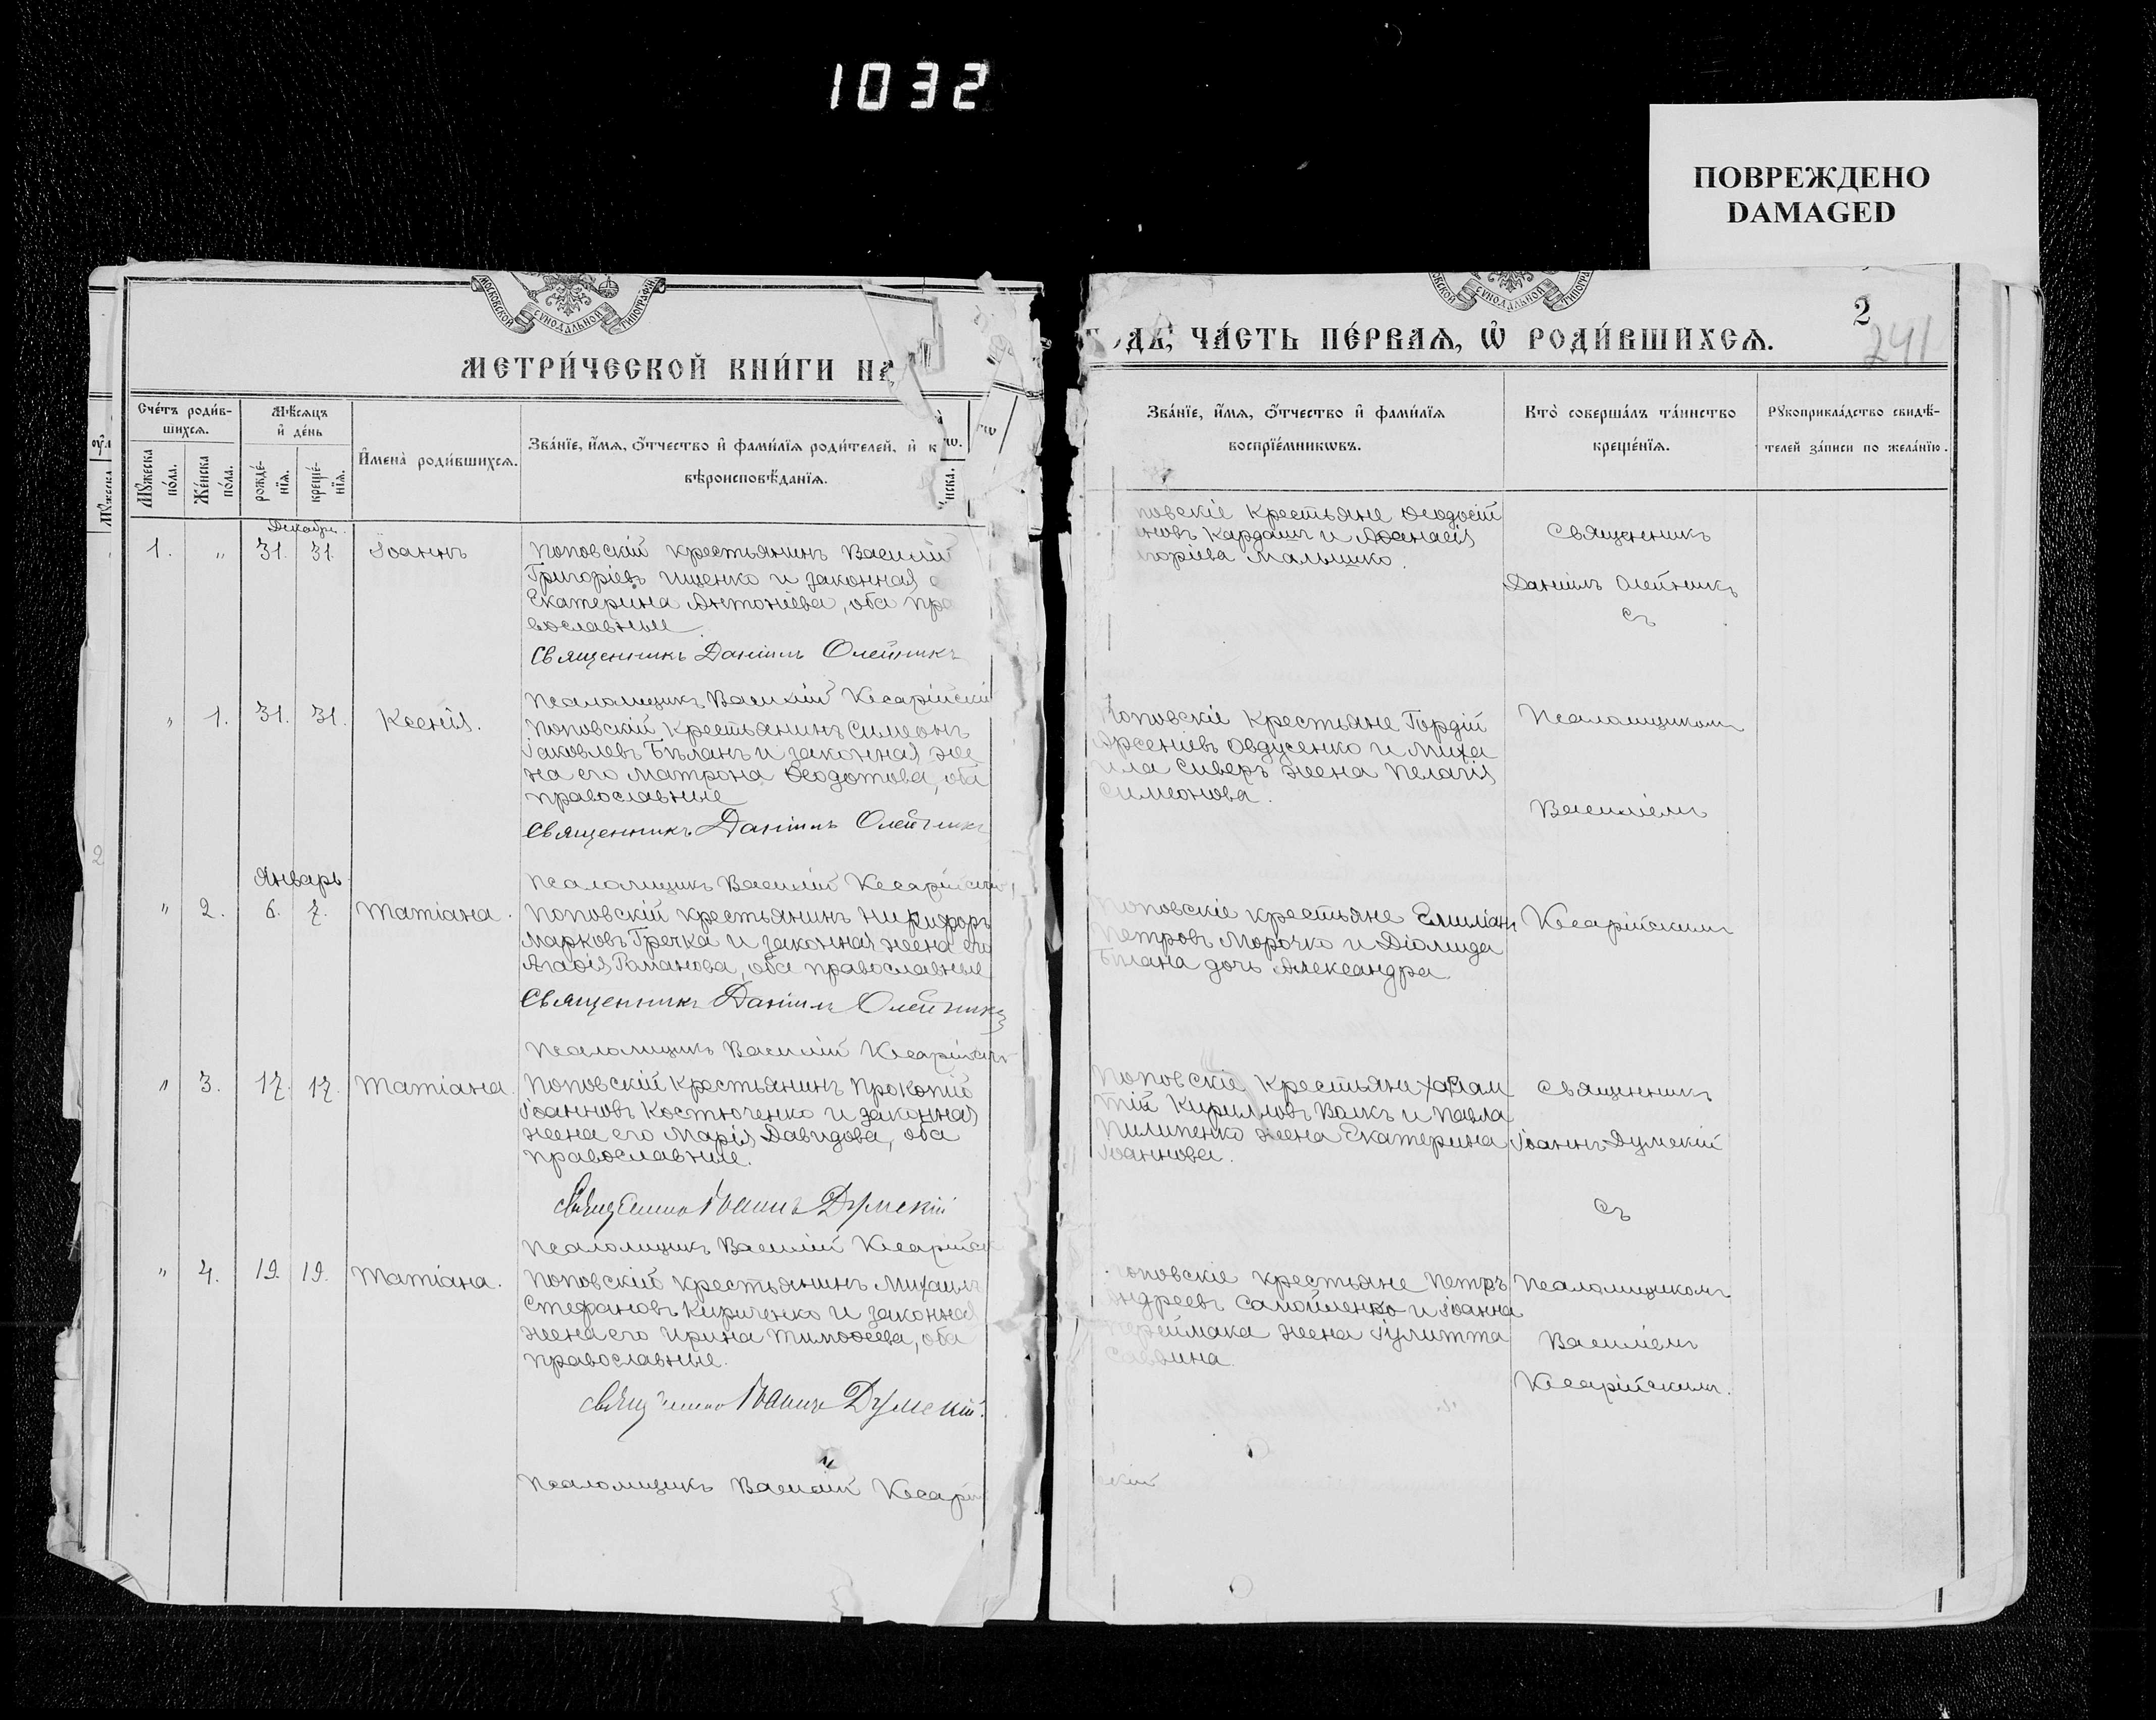 1032
ПОВРЕЖДЕНО
DAMAGED
МОСКОВСКОЙ СѴНОДАЛЬНОЙ ТИПОГРАФІИ
МЕТРИ́ЧЕСКОЙ КНИ́ГИ НА
Сче́тъ роди́в-
шихсѧ.
Мꙋ́жеска по́ла.
Же́нска по́ла.
Мѣ́сѧцъ
и҆ де́нь
рожде́-
нїѧ.
креще́-
нїѧ.
И҆мена̀ роди́вшихсѧ.
Зва́нїе, и҆́мѧ, ѻ҆́тчество и҆ фами́лїѧ роди́телей, и҆ к
вѣроисповѣ́данїѧ.
Декабрь.
1. „ 31. 31. Іоаннъ
Поповскій крестьянинъ Василій
Григоріевъ Ищенко и законная
Екатерина Антоніева, оба пра
вославные.
Священникъ Даніилъ Олейникъ
Псаломщикъ Василій Кесарійскій
„ 1. 31. 31. Ксенія.
Поповскій крестьянинъ Симеонъ
Іаковлевъ Бѣланъ и законная же
на его Матрона Ѳеодотова, оба
православные
Священникъ Даніилъ Олейникъ
Псаломщикъ Василій Кесарійскій
Январь
„ 2. 6. 7. Татіана.
Поповскій крестьянинъ Никифоръ
Марковъ Гречка и законная жена его
Агаѳія Романова, оба православные
Священникъ Даніилъ Олейникъ
Псаломщикъ Василій Кесарійскій
„ 3. 17. 17. Татіана.
Поповскій крестьянинъ Прокопій
Іоанновъ Костюченко и законная
жена его Марія Давидова, оба
православные.
Священникъ Іоаннъ Думскій
Псаломщикъ Василій Кесарійск
„ 4. 19. 19. Татіана.
Поповскій крестьянинъ Михаилъ
Стефановъ Кириченко и законная
жена его Ирина Тимоѳеева, оба
православные.
Священникъ Іоаннъ Думскій.
Псаломщикъ Василій Кесарій
МОСКОВСКОЙ СѴНОДАЛЬНОЙ ТИПОГРАФІИ
2
241
ГОДЪ, ЧА́СТЬ ПЕ́РВАѦ, Ѡ҆ РОДИ́ВШИХСѦ.
Зва́нїе, и҆́мѧ, ѻ҆́тчество и҆ фами́лїѧ
воспрїе́мникѡвъ.
Кто̀ соверша́лъ та́инство
креще́нїѧ.
Рꙋкоприкла́дство свидѣ́-
телей за́писи по жела́нїю.
повскіе крестьяне Ѳеодосій
новъ Кардашъ и Аѳанасія
горіева Малышко.
Священникъ
Даніилъ Олейникъ
съ
Поповскіе крестьяне Гордій
Арсеніевъ Овдусенко и Миха
ила Сиверъ жена Пелагія
Симеонова.
Псаломщикомъ
Василіемъ
Поповскіе крестьяне Емиліанъ
Петровъ Морочко и Діомида
Бѣлана дочь Александра.
Кесарійскимъ
Поповскіе крестьяне Харлам
пій Кирилловъ Волкъ и Павла
Пилипенко жена Екатерина
Іоаннова.
Священникъ
Іоаннъ Думскій
съ
Поповскіе крестьяне Петръ
Андреевъ Самойленко и Іоанна
Переймака жена Іулитта
Саввина.
Псаломщикомъ
Василіемъ
Кесарійскимъ.
скій